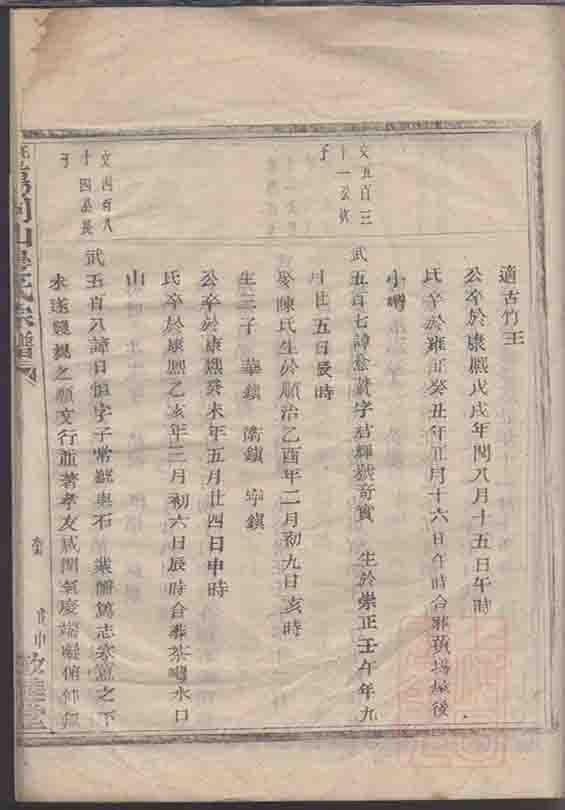 適古竹王
公卒於康熙戊戌年閏八月十五日午時
氏卒於雍正癸丑年正月十六日午時合葬黃場屋後
小嶺
文五百三
十一公次
子
武五百七諱意贊字君輝號奇賓 生於崇正壬午年九
月廿五日辰時
娶陳氏生於順治乙酉年二月初九日亥時
生三子 華鎮 衡鎮 寧鎮
公卒於康熙癸未年五月廿四日申時
氏卒於康熙乙亥年三月初六日辰時合葬茶灣水口
山
文四百八
十四公長
子
武五百六諱日恒字子常號奥石 業儒篤志家篤之下
永遂親之願文行並著孝友咸閒氣慶端凝俯仰無
宗譜
戊申